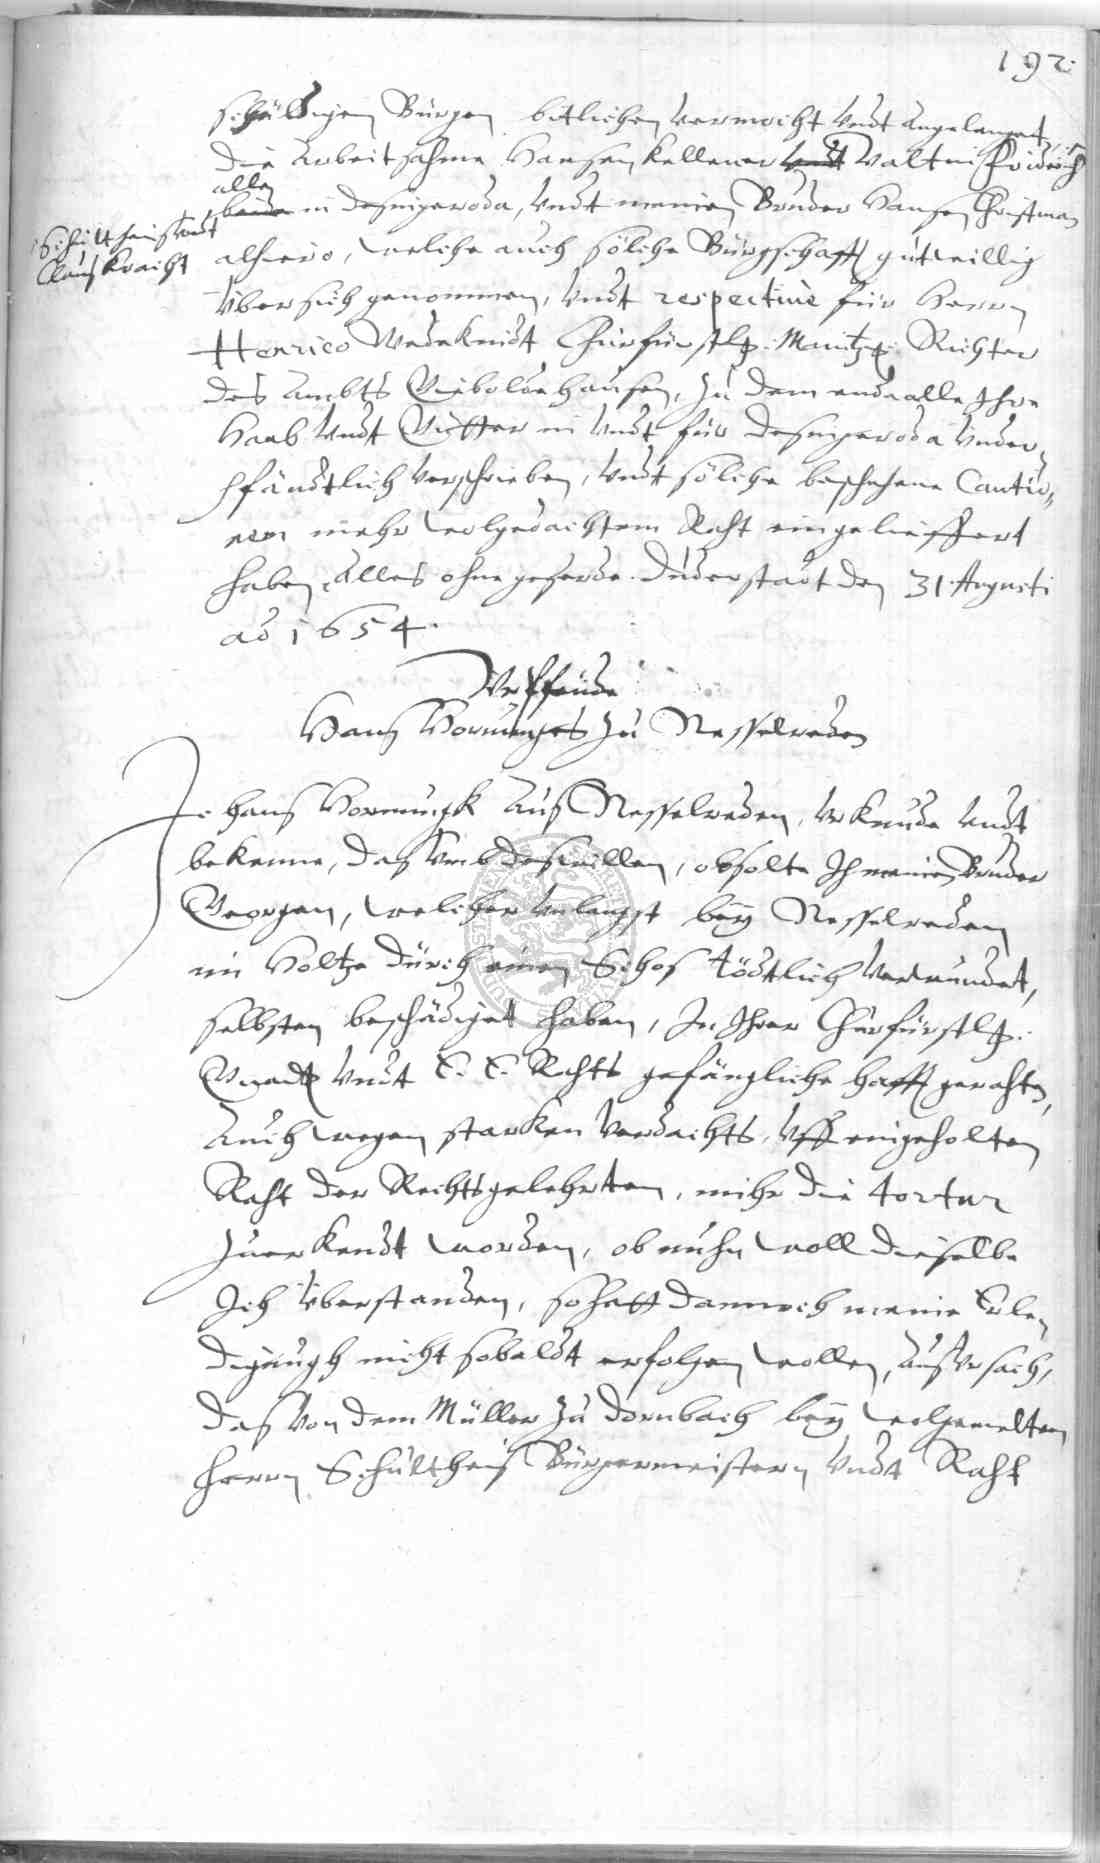 192.
schüldigen Bürgen bitlichen vermocht undt angelanget,
die Arbeitsahme Hansen Kellener undt Valtin Friderich
allen
beide in Desingeroda, undt meinen Bruder Hansen Christman
Schultheis undt
Claus Kracht
alhiero, welche auch solche Bürgschafft gutwillig
über sich genommen, undt respective für Herrn
Henrico Wedekindt Churfürstl. Maintz. Richter
des Ambts Gieboldehausen, zu dem ende alle Ihre
Haab undt Gütter in undt für Desingeroda under-
pfändtlich verschrieben, undt solche beschehene Cautio-
nem mehr wolgedachtem Raht eingelieffert
haben, Alles ohne geferde. Duderstadt den 31. Augusti
ao 1654.
Urpfeide
Hans Hornunges zu Nesselreden
Ich Hans Hornungk Aus Nesselreden, Urkunde undt
bekenne, das umb deswillen, ob solte Ich meinen Bruder
Georgen, welicher unlengst bey Nesselreden
im Holtze durch einen Schos tödtlich verwundet,
selbsten beschädiget haben, In Ihrer Churfürstl.
Gnad. undt E. E. Rahts gefängliche hafft gerahten,
Auch wegen starken verdachts, uff eingeholten
Raht der Rechtsgelehrten, mihr die tortur
zuerkendt worden, ob nuhn woll dieselbe
Ich überstanden, so hatt dannoch meine Erle-
digungh nicht sobaldt erfolgen wollen, aus ursach,
das von dem Müller zu Dornbach bey wolgemelten
herrn Schultheis Bürgermeistern undt Raht